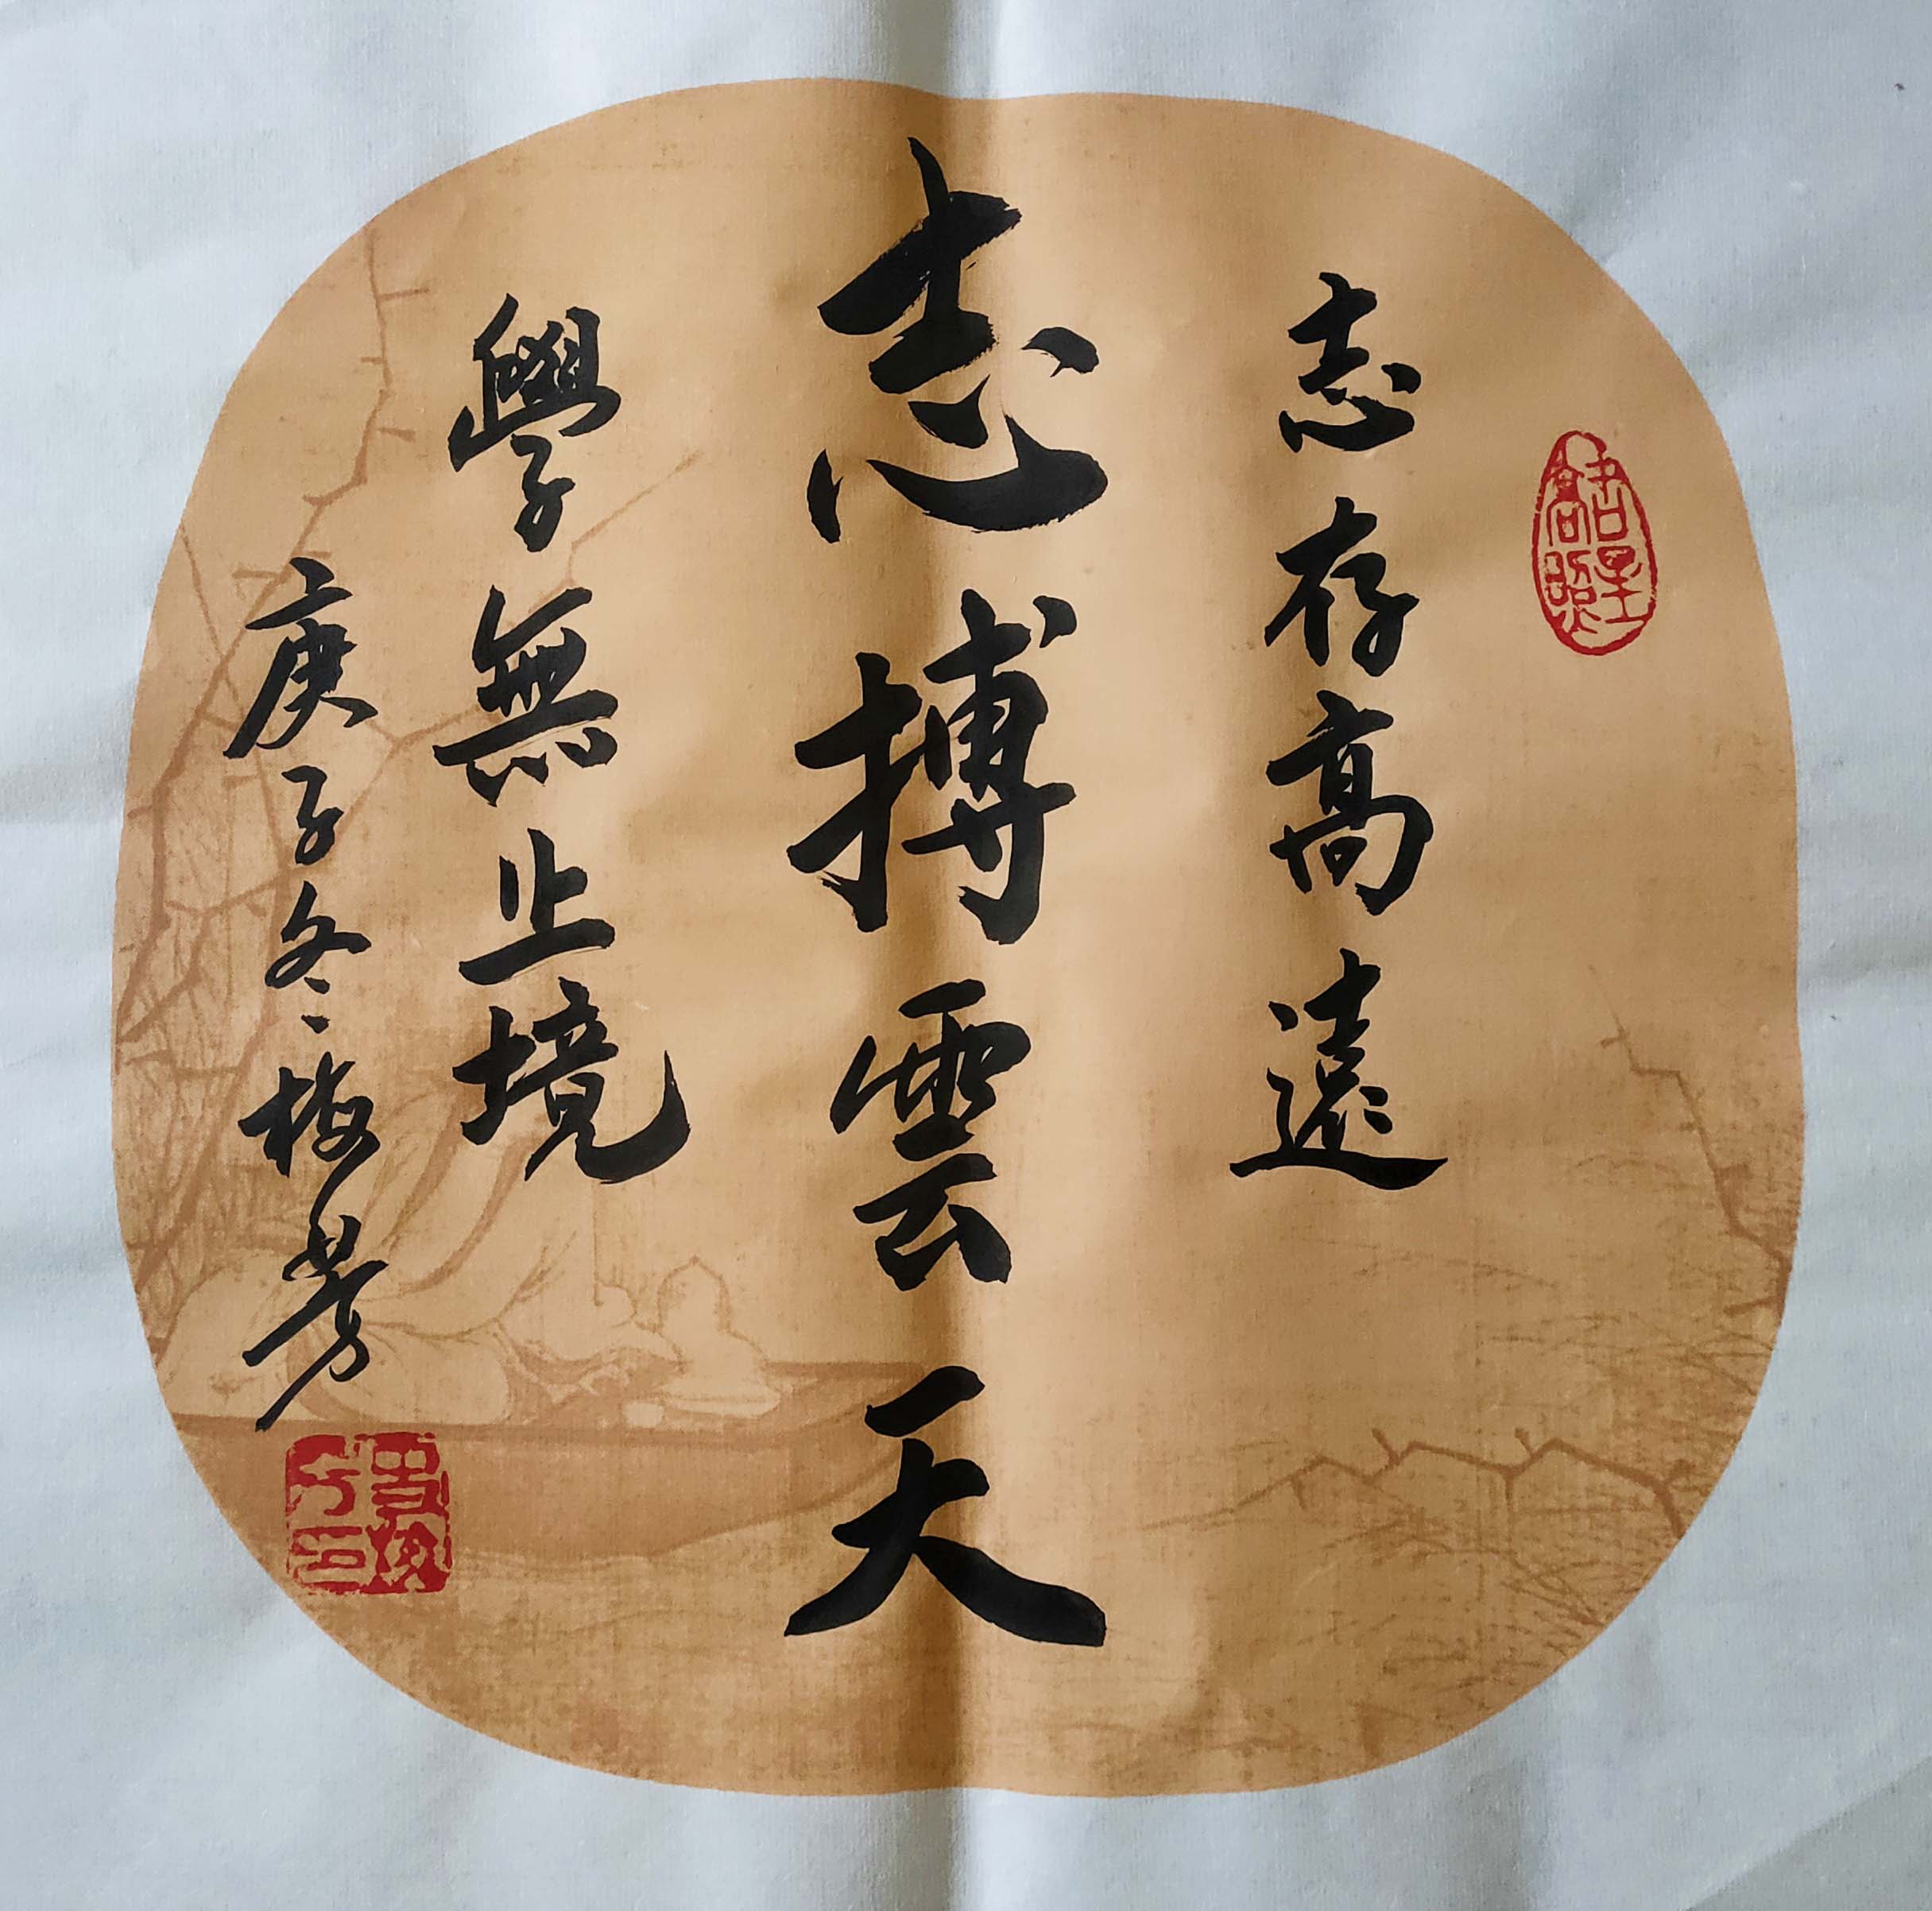 志存高遠
志搏雲天
學無止境
庚子冬梅芳